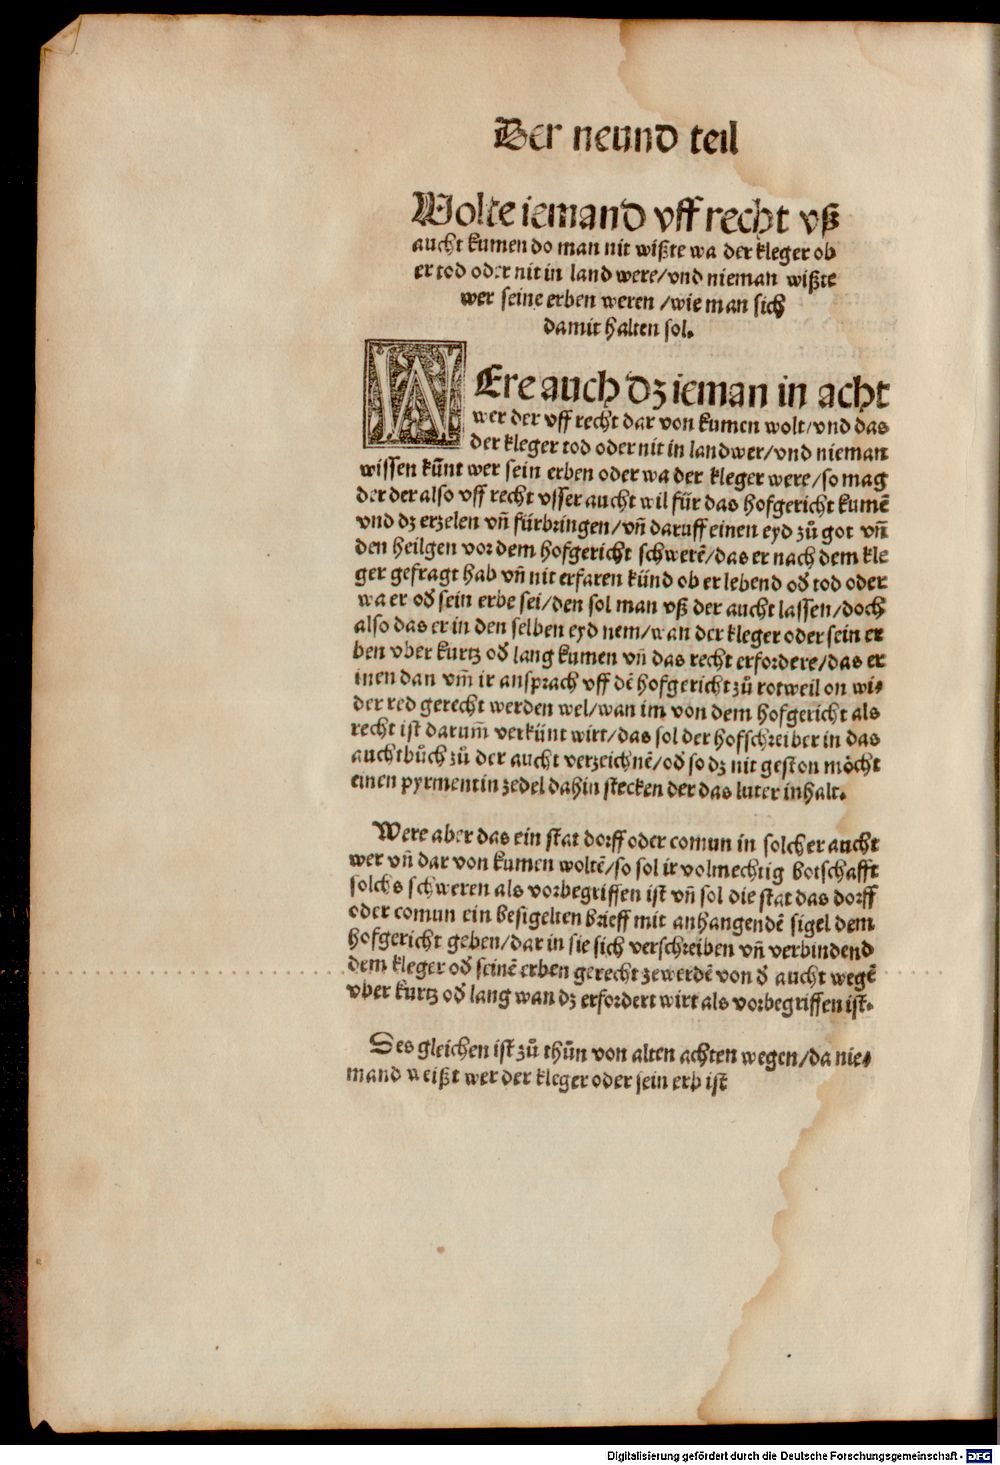 Der neund teil
Wolte iemand vff recht vß
aucht kumen do man nit wißte wa der kleger ob
er tod oder nit in land were/vnd nieman wißte
wer seine erben weren /wie man sich
damit halten sol.
WEre auch dz ieman in acht
wer der vff recht dar von kumen wolt/vnd das
der kleger tod oder nit in land wer/vnd nieman
wissen kűnt wer sein erben oder wa der kleger were/so mag
der der also vff recht vsser aucht wil für das hofgericht kumē
vnd dz erzelen vn̄ fürbringen/vn̄ daruff einen eyd zů got vn̄
den heilgen vor dem hofgericht schwerē/das er nach dem kle
ger gefragt hab vn̄ nit erfaren künd ob er lebend oď tod oder
wa er oď sein erbe sei/den sol man vß der aucht lassen/doch
also das er in den selben eyd nem/wan der kleger oder sein er
ben vber kurtz oď lang kumen vn̄ das recht erfordere/das er
inen dan vm̄ ir ansprach vff dē hofgericht zů rotweil on wi⸗
der red gerecht werden wel/wan im von dem hofgericht als
recht ist darum̄ verkünt wirt/das sol der hofschreiber in das
auchtbůch zů der aucht verzeichnē/oď so dz nit geston möcht
einen pyrmentin zedel dahin stecken der das luter inhalt.
Were aber das ein stat dorff oder comun in solcher aucht
wer vn̄ dar von kumen woltē/so sol ir volmechtig botschafft
solchs schweren als vorbegriffen ist vn̄ sol die stat das dorff
oder comun ein besigelten brieff mit anhangendē sigel dem
hofgericht geben/dar in sie sich verschreiben vn̄ verbindend
dem kleger oď seinē erben gerecht zewerdē von ď aucht wegē
vber kurtz oď lang wan dz erfordert wirt als vorbegriffen ist.
Des gleichen ist zů thůn von alten achten wegen/da nie⸗
mand weißt wer der kleger oder sein erb ist
Digitalisierung gefördert durch die Deutsche Forschungsgemeinschaft - DFG